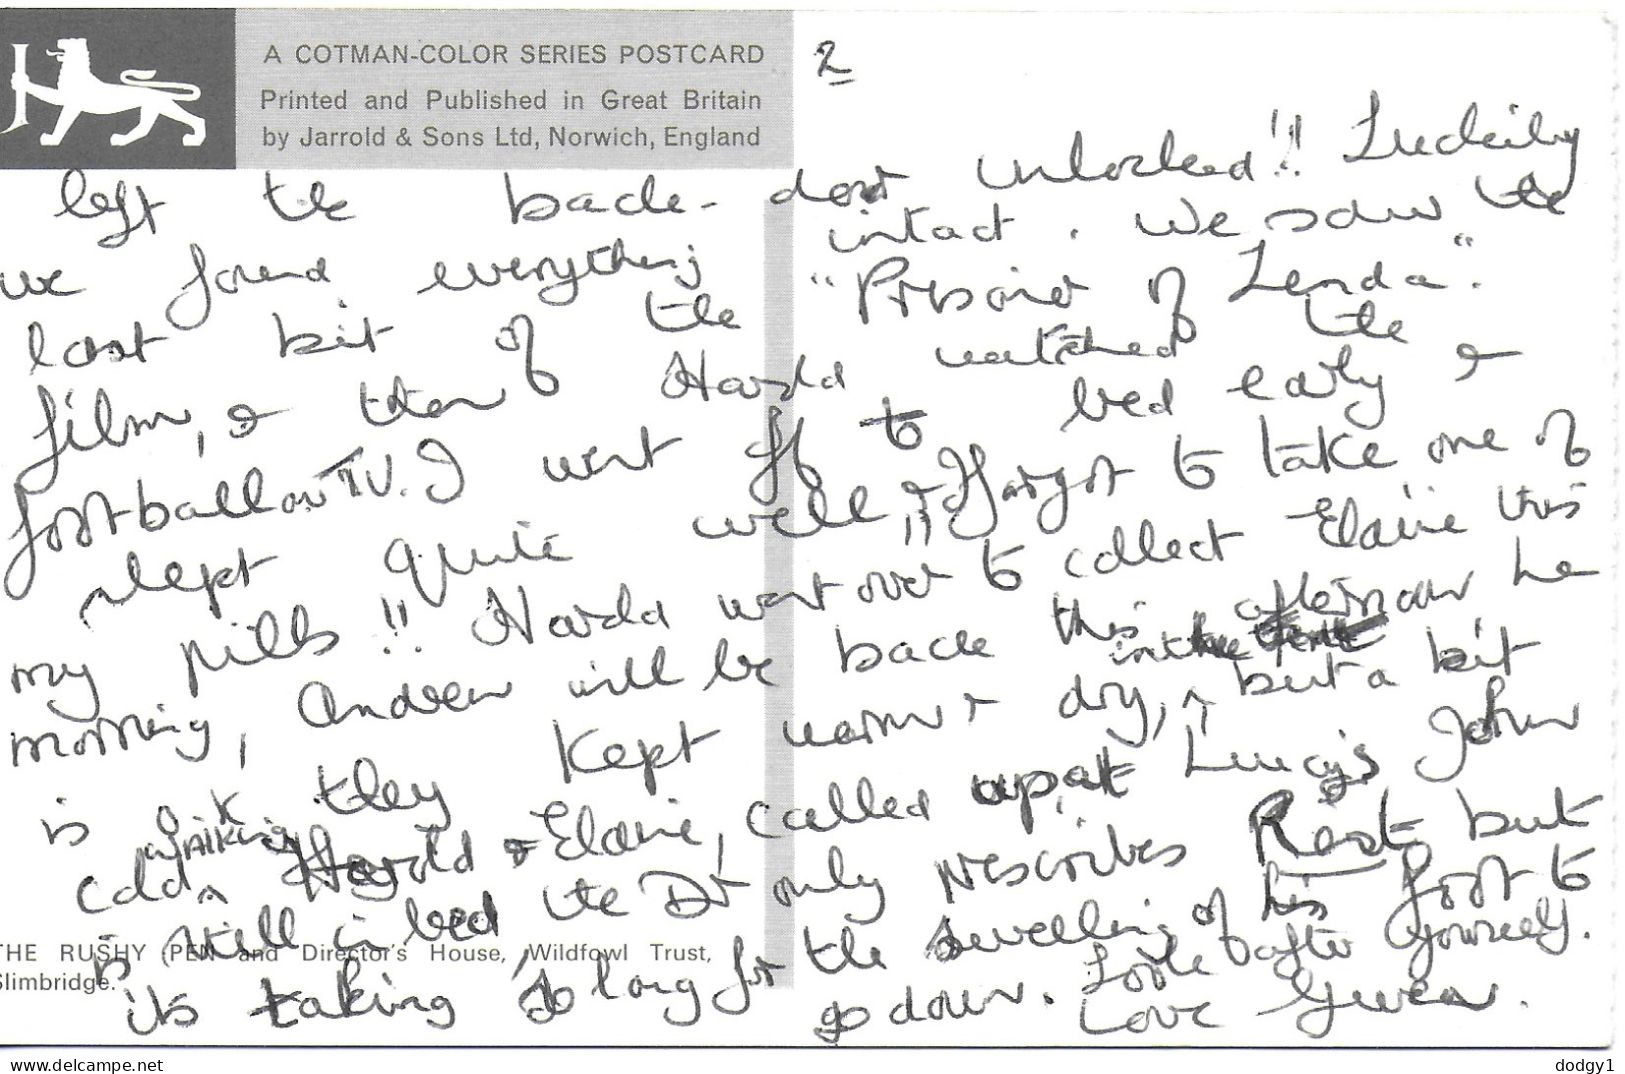 A COTMAN-COLOR SERIES POSTCARD
Printed and Published in Great Britain
by Jarrold & Sons Ltd, Norwich, England
2
left the back-door unlocked!! Luckily
we found everything intact. We saw the
last bit of the "Prisoner of Zenda".
film, & then Harold watched the
football on TV. I went off to bed early &
slept quite well, & forgot to take one of
my pills!! Harold went over to collect Elaine this
morning, Andrew will be back this afternoon he
is they kept warm & dry, in the but a bit
cold. Harold & Elaine, called up at Lucy's John
is still in bed the Dr only prescribes Rest but
its taking so long for the swelling of his foot to
go down. Look after yourself.
Love Gwen.
THE RUSHY PEN and Director's House, Wildfowl Trust,
Slimbridge.
delcampe.net
dodgy1